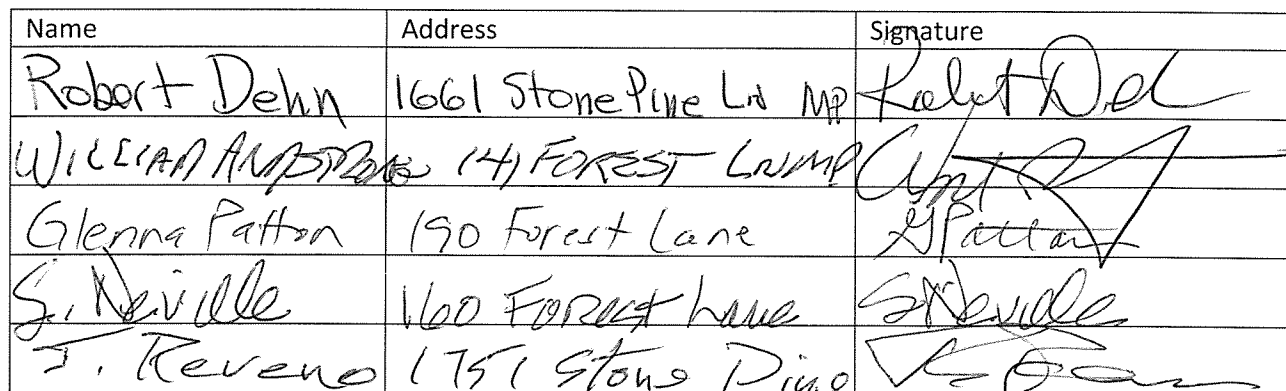 Name Address Signature
Robert Dehn 1661 Stone Pine Ln MP Robert Deh
WILLIAM ARMSTRONG 141 FOREST LN MP
Glenna Patton 190 Forest Lane GPatton
S. Neville 160 Forest Lane S Neville
J. Reveno 1751 Stone Pine